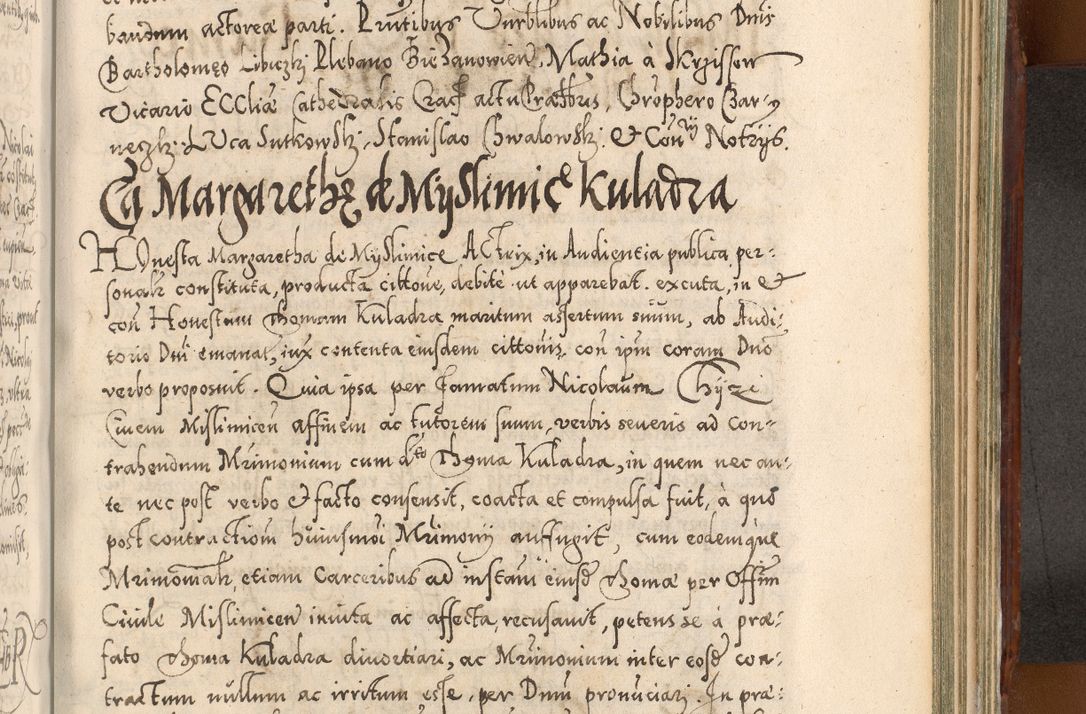 bandum actoreæ parti. Pntibus Vnrblibus ac Nobilibus Dnis
Bartholomęo Libiczki Plebano Bieżanowien, Mathia à Skrzissow
Vicario ECCliæ Cathedralis Cracƺ actu Præsbris, Chrophero Czar-
neczki. LUca Sutkowski, Stanislao Chwalowski. & Con Notrijs.
Ca Margarethę de Myślimicę Kuladra
HOnesta Margaretha de Myślimicę ACtrix, in Audientia publica per-
sonalr constituta, producta cittone, debitè ut apparebat. excuta, in &
con Honestum Thomam Kuladra maritum assertum suum, ab Audi-
torio Dni emanat, iux contenta eiusdem cittonis con ipm coram Dno
verbo proposuit. Quia ipsa per Famatum Nicolaum Chyze
Ciuem Mislimicen affinem ac tutorem suum, verbis seueris ad con-
trahendum Mrimonium cum dto Thoma Kuladra, in quem nec an-
te nec post verbo & facto consensit, coacta et compulsa fuit, à quo
post contractiom huiusmoi Mrimonij auffugit, cum eodemque
Mrimomalr, etiam Carceribus ad instam eiusd Thomæ per Offim
Ciuile Mislimicen inuita ac affecta, recusauit, petens se à præ-
fato Thoma Kuladra diuortiari, ac Mrimonium inter eosd con-
tractum nullum ac irritum esse, per Dnm pronuciari. In præ-